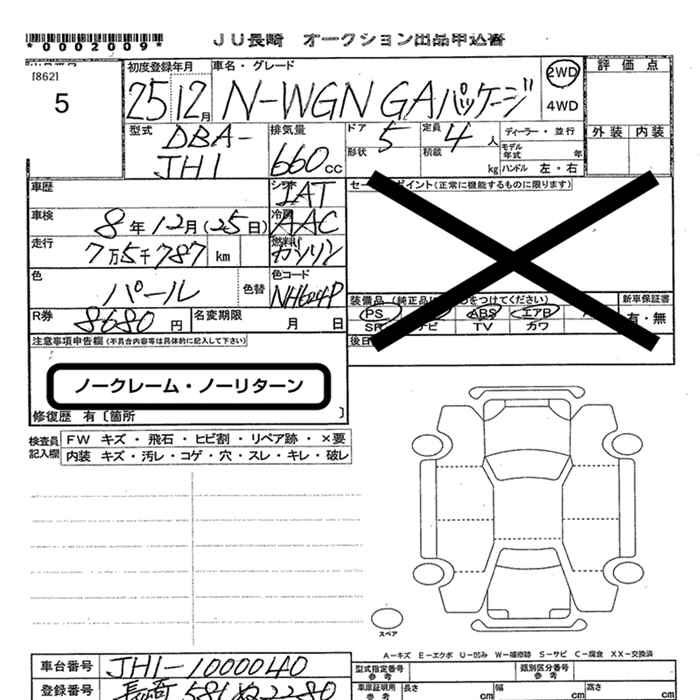 *0002009*
JU長崎 オークション出品申込書
[862]
5
初度登録年月
25 12月
車名・グレード
N-WGN GAパッケージ
2WD
4WD
評価点
外装 内装
型式
DBA-
JH1
排気量
660cc
ドア 5
形状
定員 4人
積載 kg
ディーラー・並行
モデル年式 年
ハンドル 左・右
車歴
シフト
IAT
セールスポイント(正常に機能するものに限ります)
車検
8年12月(25日)
冷房
AAC
走行
7万5千787 km
燃料
ガソリン
色
パール
色替
色コード
NH624P
装備品
新車保証書
有・無
PS ABS エアB
TV カワ
R券
8680円
名変期限
月 日
注意事項申告欄(不具合内容等は具体的に記入して下さい)
ノークレーム・ノーリターン
修復歴 有〔箇所 〕
検査員記入欄
FW キズ・飛石・ヒビ割・リペア跡・×要
内装 キズ・汚レ・コゲ・穴・スレ・キレ・破レ
スペア
A-キズ E-エクボ U-凹み W-補修跡 S-サビ C-腐食 XX-交換済
車台番号
JH1-1000040
型式指定番号
参考
類別区分番号
参考
登録番号
長崎 581 ぬ 2280
車庫証明用
参考
長さ cm
幅 cm
高さ cm